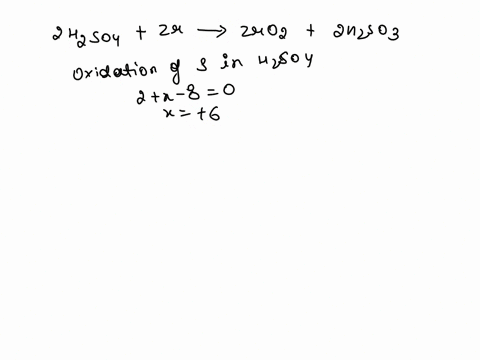 2H₂SO₄ + Zr → ZrO₂ + 2H₂SO₃
Oxidation of S in H₂SO₄
2+x-8=0
x=+6